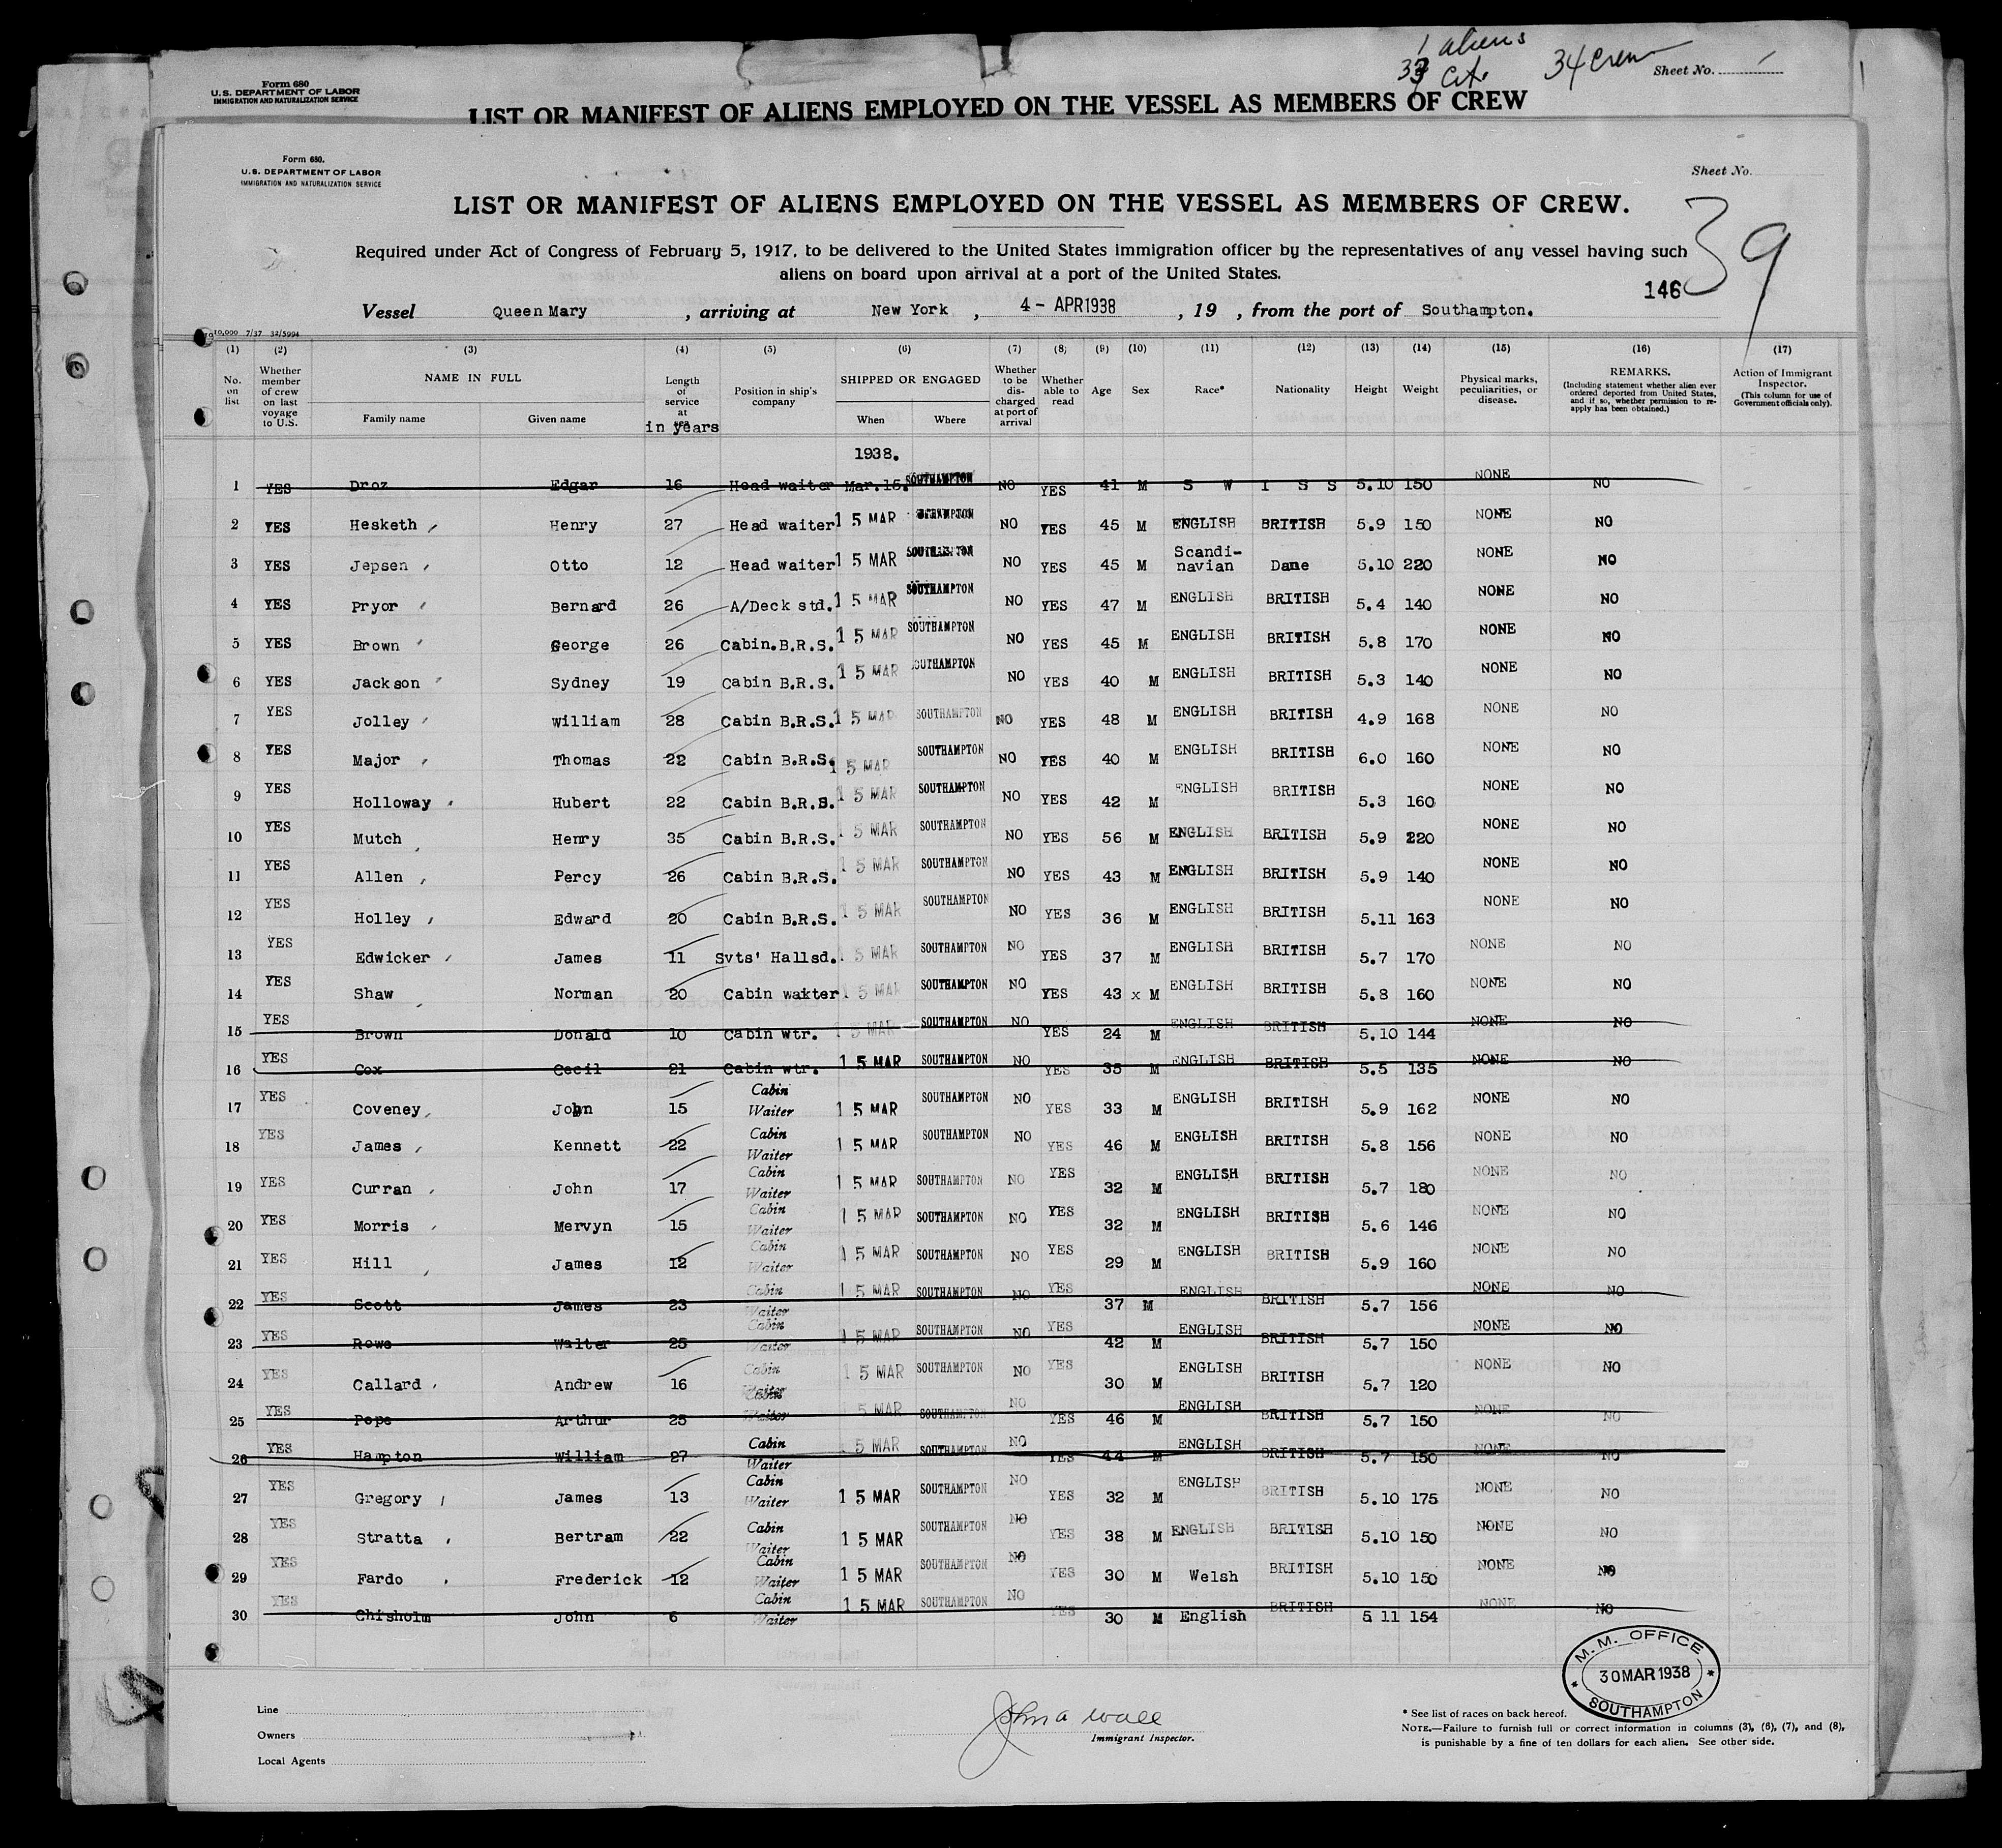 1 aliens
Sheet No.
34 crew
Form 680
U.S. DEPARTMENT OF LABOR
IMMIGRATION AND NATURALIZATION SERVICE
LIST OR MANIFEST OF ALIENS EMPLOYED ON THE VESSEL AS MEMBERS OF CREW
Form 680.
U.S. DEPARTMENT OF LABOR
IMMIGRATION AND NATURALIZATION SERVICE
Sheet No.
39
LIST OR MANIFEST OF ALIENS EMPLOYED ON THE VESSEL AS MEMBERS OF CREW.
Required under Act of Congress of February 5, 1917, to be delivered to the United States immigration officer by the representatives of any vessel having such
aliens on board upon arrival at a port of the United States.
146
Vessel Queen Mary , arriving at New York , 4 - APR 1938 , 19 , from the port of Southampton.
10,000 7/37 32/5994
(1) (2) (3) (4) (5) (6) (7) (8) (9) (10) (11) (12) (13) (14) (15) (16) (17)
No. on list Whether member of crew on last voyage to U.S. NAME IN FULL Family name Given name Length of service at sea in years Position in ship's company SHIPPED OR ENGAGED When Where Whether to be discharged at port of arrival Whether able to read Age Sex Race* Nationality Height Weight Physical marks, peculiarities, or disease. REMARKS. (Including statement whether alien ever ordered deported from United States, and if so, whether permission to re-apply has been obtained.) Action of Immigrant Inspector. (This column for use of Government officials only).
1938.
1 YES Droz Edgar 16 Head waiter Mar. 15. SOUTHAMPTON NO YES 41 M S W I S S 5.10 150 NONE NO
2 YES Hesketh Henry 27 Head waiter 15 MAR SOUTHAMPTON NO YES 45 M ENGLISH BRITISH 5.9 150 NONE NO
3 YES Jepsen Otto 12 Head waiter 15 MAR SOUTHAMPTON NO YES 45 M Scandi-navian Dane 5.10 220 NONE NO
4 YES Pryor Bernard 26 A/Deck std. 15 MAR SOUTHAMPTON NO YES 47 M ENGLISH BRITISH 5.4 140 NONE NO
5 YES Brown George 26 Cabin.B.R.S. 15 MAR SOUTHAMPTON NO YES 45 M ENGLISH BRITISH 5.8 170 NONE NO
6 YES Jackson Sydney 19 Cabin B.R.S. 15 MAR SOUTHAMPTON NO YES 40 M ENGLISH BRITISH 5.3 140 NONE NO
7 YES Jolley William 28 Cabin B.R.S. 15 MAR SOUTHAMPTON NO YES 48 M ENGLISH BRITISH 4.9 168 NONE NO
8 YES Major Thomas 22 Cabin B.R.S. 15 MAR SOUTHAMPTON NO YES 40 M ENGLISH BRITISH 6.0 160 NONE NO
9 YES Holloway Hubert 22 Cabin B.R.S. 15 MAR SOUTHAMPTON NO YES 42 M ENGLISH BRITISH 5.3 160 NONE NO
10 YES Mutch Henry 35 Cabin B.R.S. 15 MAR SOUTHAMPTON NO YES 56 M ENGLISH BRITISH 5.9 220 NONE NO
11 YES Allen Percy 26 Cabin B.R.S. 15 MAR SOUTHAMPTON NO YES 43 M ENGLISH BRITISH 5.9 140 NONE NO
12 YES Holley Edward 20 Cabin B.R.S. 15 MAR SOUTHAMPTON NO YES 36 M ENGLISH BRITISH 5.11 163 NONE NO
13 YES Edwicker James 11 Svts' Hallsd. 15 MAR SOUTHAMPTON NO YES 37 M ENGLISH BRITISH 5.7 170 NONE NO
14 YES Shaw Norman 20 Cabin waiter 15 MAR SOUTHAMPTON NO YES 43 x M ENGLISH BRITISH 5.8 160 NONE NO
15 YES Brown Donald 10 Cabin wtr. 15 MAR SOUTHAMPTON NO YES 24 M ENGLISH BRITISH 5.10 144 NONE NO
16 YES Cox Cecil 21 Cabin wtr. 15 MAR SOUTHAMPTON NO YES 35 M ENGLISH BRITISH 5.5 135 NONE NO
17 YES Coveney John 15 Cabin Waiter 15 MAR SOUTHAMPTON NO YES 33 M ENGLISH BRITISH 5.9 162 NONE NO
18 YES James Kennett 22 Cabin Waiter 15 MAR SOUTHAMPTON NO YES 46 M ENGLISH BRITISH 5.8 156 NONE NO
19 YES Curran John 17 Cabin Waiter 15 MAR SOUTHAMPTON NO YES 32 M ENGLISH BRITISH 5.7 180 NONE NO
20 YES Morris Mervyn 15 Cabin Waiter 15 MAR SOUTHAMPTON NO YES 32 M ENGLISH BRITISH 5.6 146 NONE NO
21 YES Hill James 12 Cabin Waiter 15 MAR SOUTHAMPTON NO YES 29 M ENGLISH BRITISH 5.9 160 NONE NO
22 YES Scott James 23 Cabin Waiter 15 MAR SOUTHAMPTON NO YES 37 M ENGLISH BRITISH 5.7 156 NONE NO
23 YES Rowe Walter 25 Cabin Waiter 15 MAR SOUTHAMPTON NO YES 42 M ENGLISH BRITISH 5.7 150 NONE NO
24 YES Callard Andrew 16 Cabin Waiter 15 MAR SOUTHAMPTON NO YES 30 M ENGLISH BRITISH 5.7 120 NONE NO
25 YES Pope Arthur 25 Cabin Waiter 15 MAR SOUTHAMPTON NO YES 46 M ENGLISH BRITISH 5.7 150 NONE NO
26 YES Hampton William 27 Cabin Waiter 15 MAR SOUTHAMPTON NO YES 44 M ENGLISH BRITISH 5.7 150 NONE NO
27 YES Gregory James 13 Cabin Waiter 15 MAR SOUTHAMPTON NO YES 32 M ENGLISH BRITISH 5.10 175 NONE NO
28 YES Stratta Bertram 22 Cabin Waiter 15 MAR SOUTHAMPTON NO YES 38 M ENGLISH BRITISH 5.10 150 NONE NO
29 YES Fardo Frederick 12 Cabin Waiter 15 MAR SOUTHAMPTON NO YES 30 M Welsh BRITISH 5.10 150 NONE NO
30 YES Chisholm John 6 Cabin Waiter 15 MAR SOUTHAMPTON NO YES 30 M English BRITISH 5 11 154 NONE NO
M.M. OFFICE
30 MAR 1938
SOUTHAMPTON
Line
Owners
Local Agents
John A Wall
Immigrant Inspector.
* See list of races on back hereof.
NOTE.—Failure to furnish full or correct information in columns (3), (6), (7), and (8),
is punishable by a fine of ten dollars for each alien. See other side.